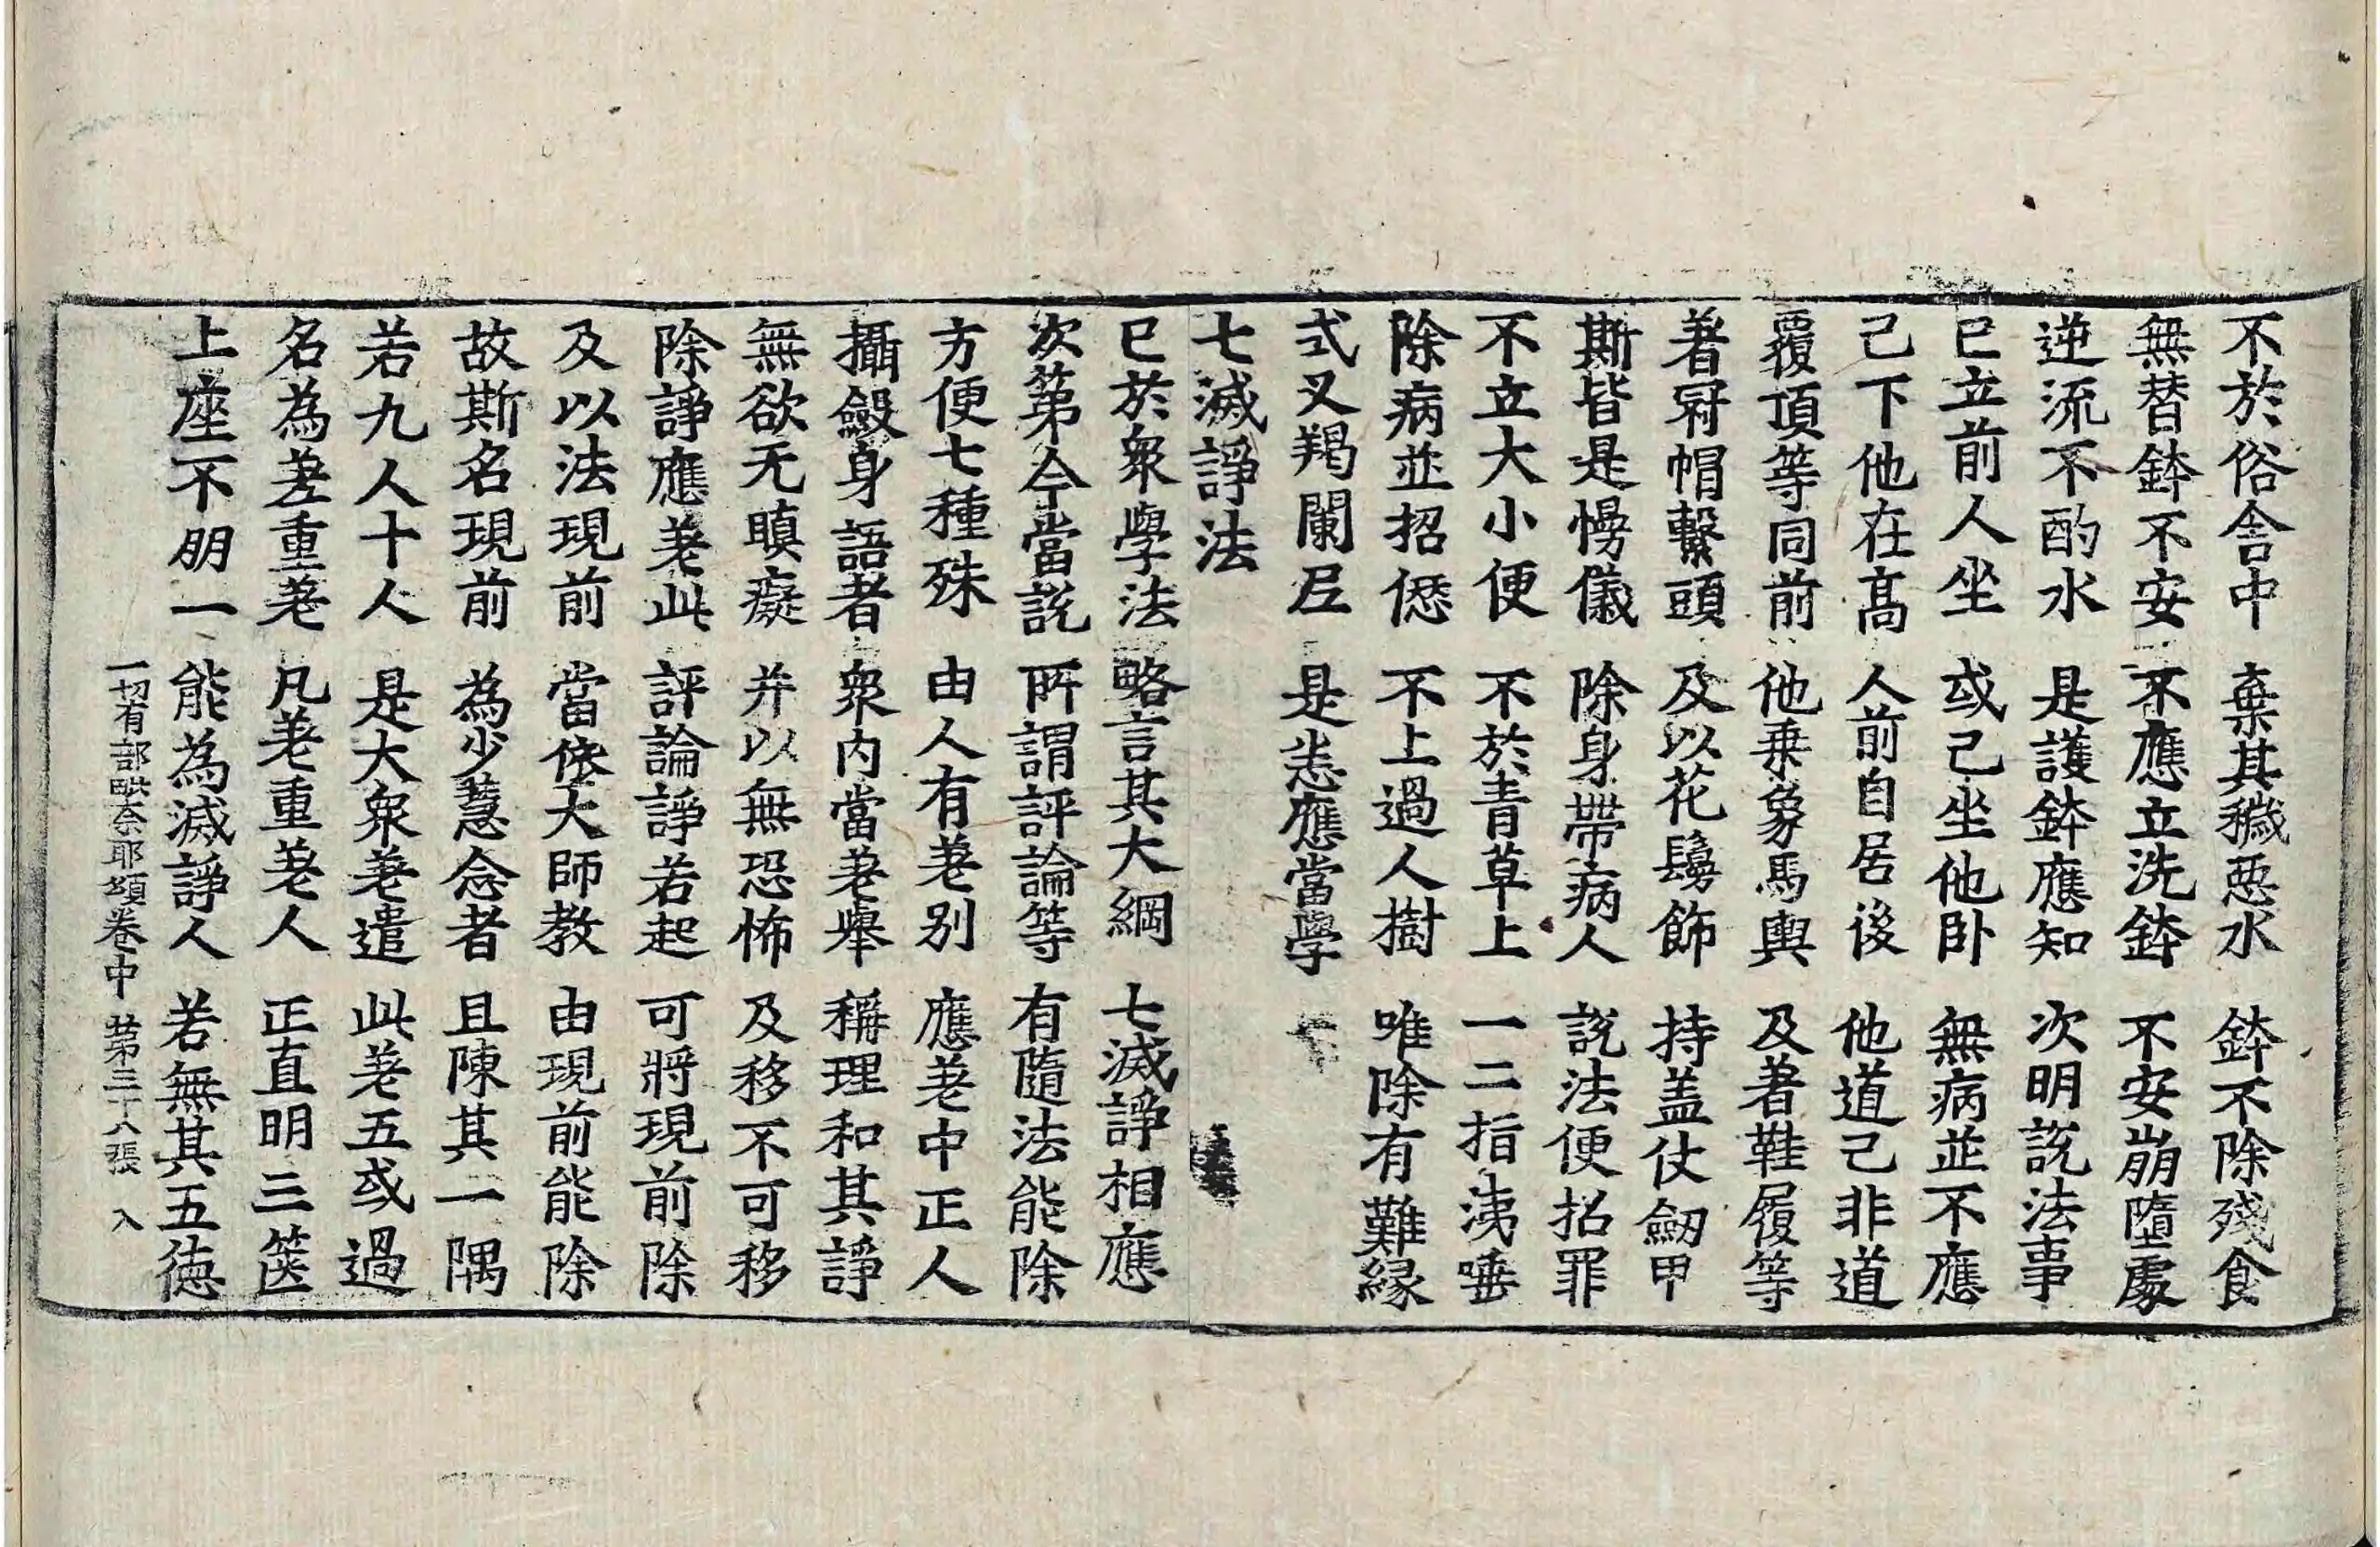 不於俗舍中　棄其穢惡水　鉢不除殘食
無替鉢不安　不應立洗鉢　不安崩墮處
逆流不酌水　是護鉢應知　次明說法事
已立前人坐　或己坐他卧　無病並不應
己下他在髙　人前自居後　他道己非道
覆頂等同前　他乗象馬輿　及著鞋履等
著冠帽繫頭　及以花鬘飾　持盖仗劒甲
斯皆是慢儀　除身帶病人　說法便招罪
不立大小便　不於青草上　一二指洟唾
除病並招愆　不上過人樹　唯除有難縁
式叉羯闌尼　是恙應當學
七滅諍法
已於衆學法　略言其大綱　七滅諍相應
次第今當說　所謂評論等　有隨法能除
方便七種殊　由人有差别　應差中正人
攝斂身語者　衆内當差舉　稱理和其諍
無欲无瞋癡　并以無恐怖　及移不可移
除諍應差此　評論諍若起　可將現前除
及以法現前　當依大師教　由現前能除
故斯名現前　為少慧念者　且陳其一隅
若九人十人　是大衆差遣　此差五或過
名為差重差　凡差重差人　正直明三篋
上座不朋一　能為滅諍人　若無其五徳
一切有部毗奈耶頌卷中　第三十八張　入